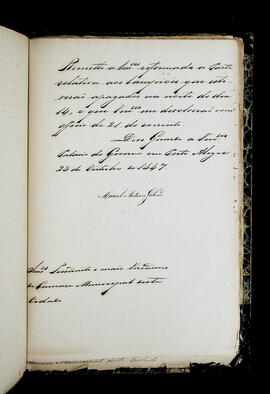 Remetto a Vm.ces reformada a Parte
relativa aos Lampiões que esti-
verão apagados na noite do dia
14, e que Vm.ces me devolverão com
officio de 21 do corrente.
Deos Guarde a Vm.ces
Palacio do Governo em Porto Alegre
23 de Outubro de 1847.
Manoel Antonio Galvão
Snr.es Presidente e mais Vereadores
da Camara Municipal desta
Cidade